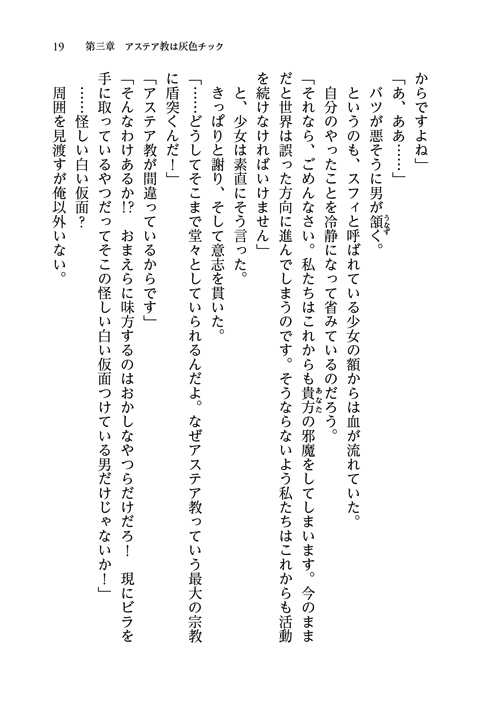 19　第三章　アステア教は灰色チック
からですよね」
「あ、ああ……」
　バツが悪そうに男が頷く。
　というのも、スフィと呼ばれている少女の額からは血が流れていた。
　自分のやったことを冷静になって省みているのだろう。
「それなら、ごめんなさい。私たちはこれからも貴方の邪魔をしてしまいます。今のまま
だと世界は誤った方向に進んでしまうのです。そうならないよう私たちはこれからも活動
を続けなければいけません」
　と、少女は素直にそう言った。
　きっぱりと謝り、そして意志を貫いた。
「……どうしてそこまで堂々としていられるんだよ。なぜアステア教っていう最大の宗教
に盾突くんだ！」
「アステア教が間違っているからです」
「そんなわけあるか!?　おまえらに味方するのはおかしなやつらだけだろ！　現にビラを
手に取っているやつだってそこの怪しい白い仮面つけている男だけじゃないか！」
　……怪しい白い仮面？
　周囲を見渡すが俺以外いない。